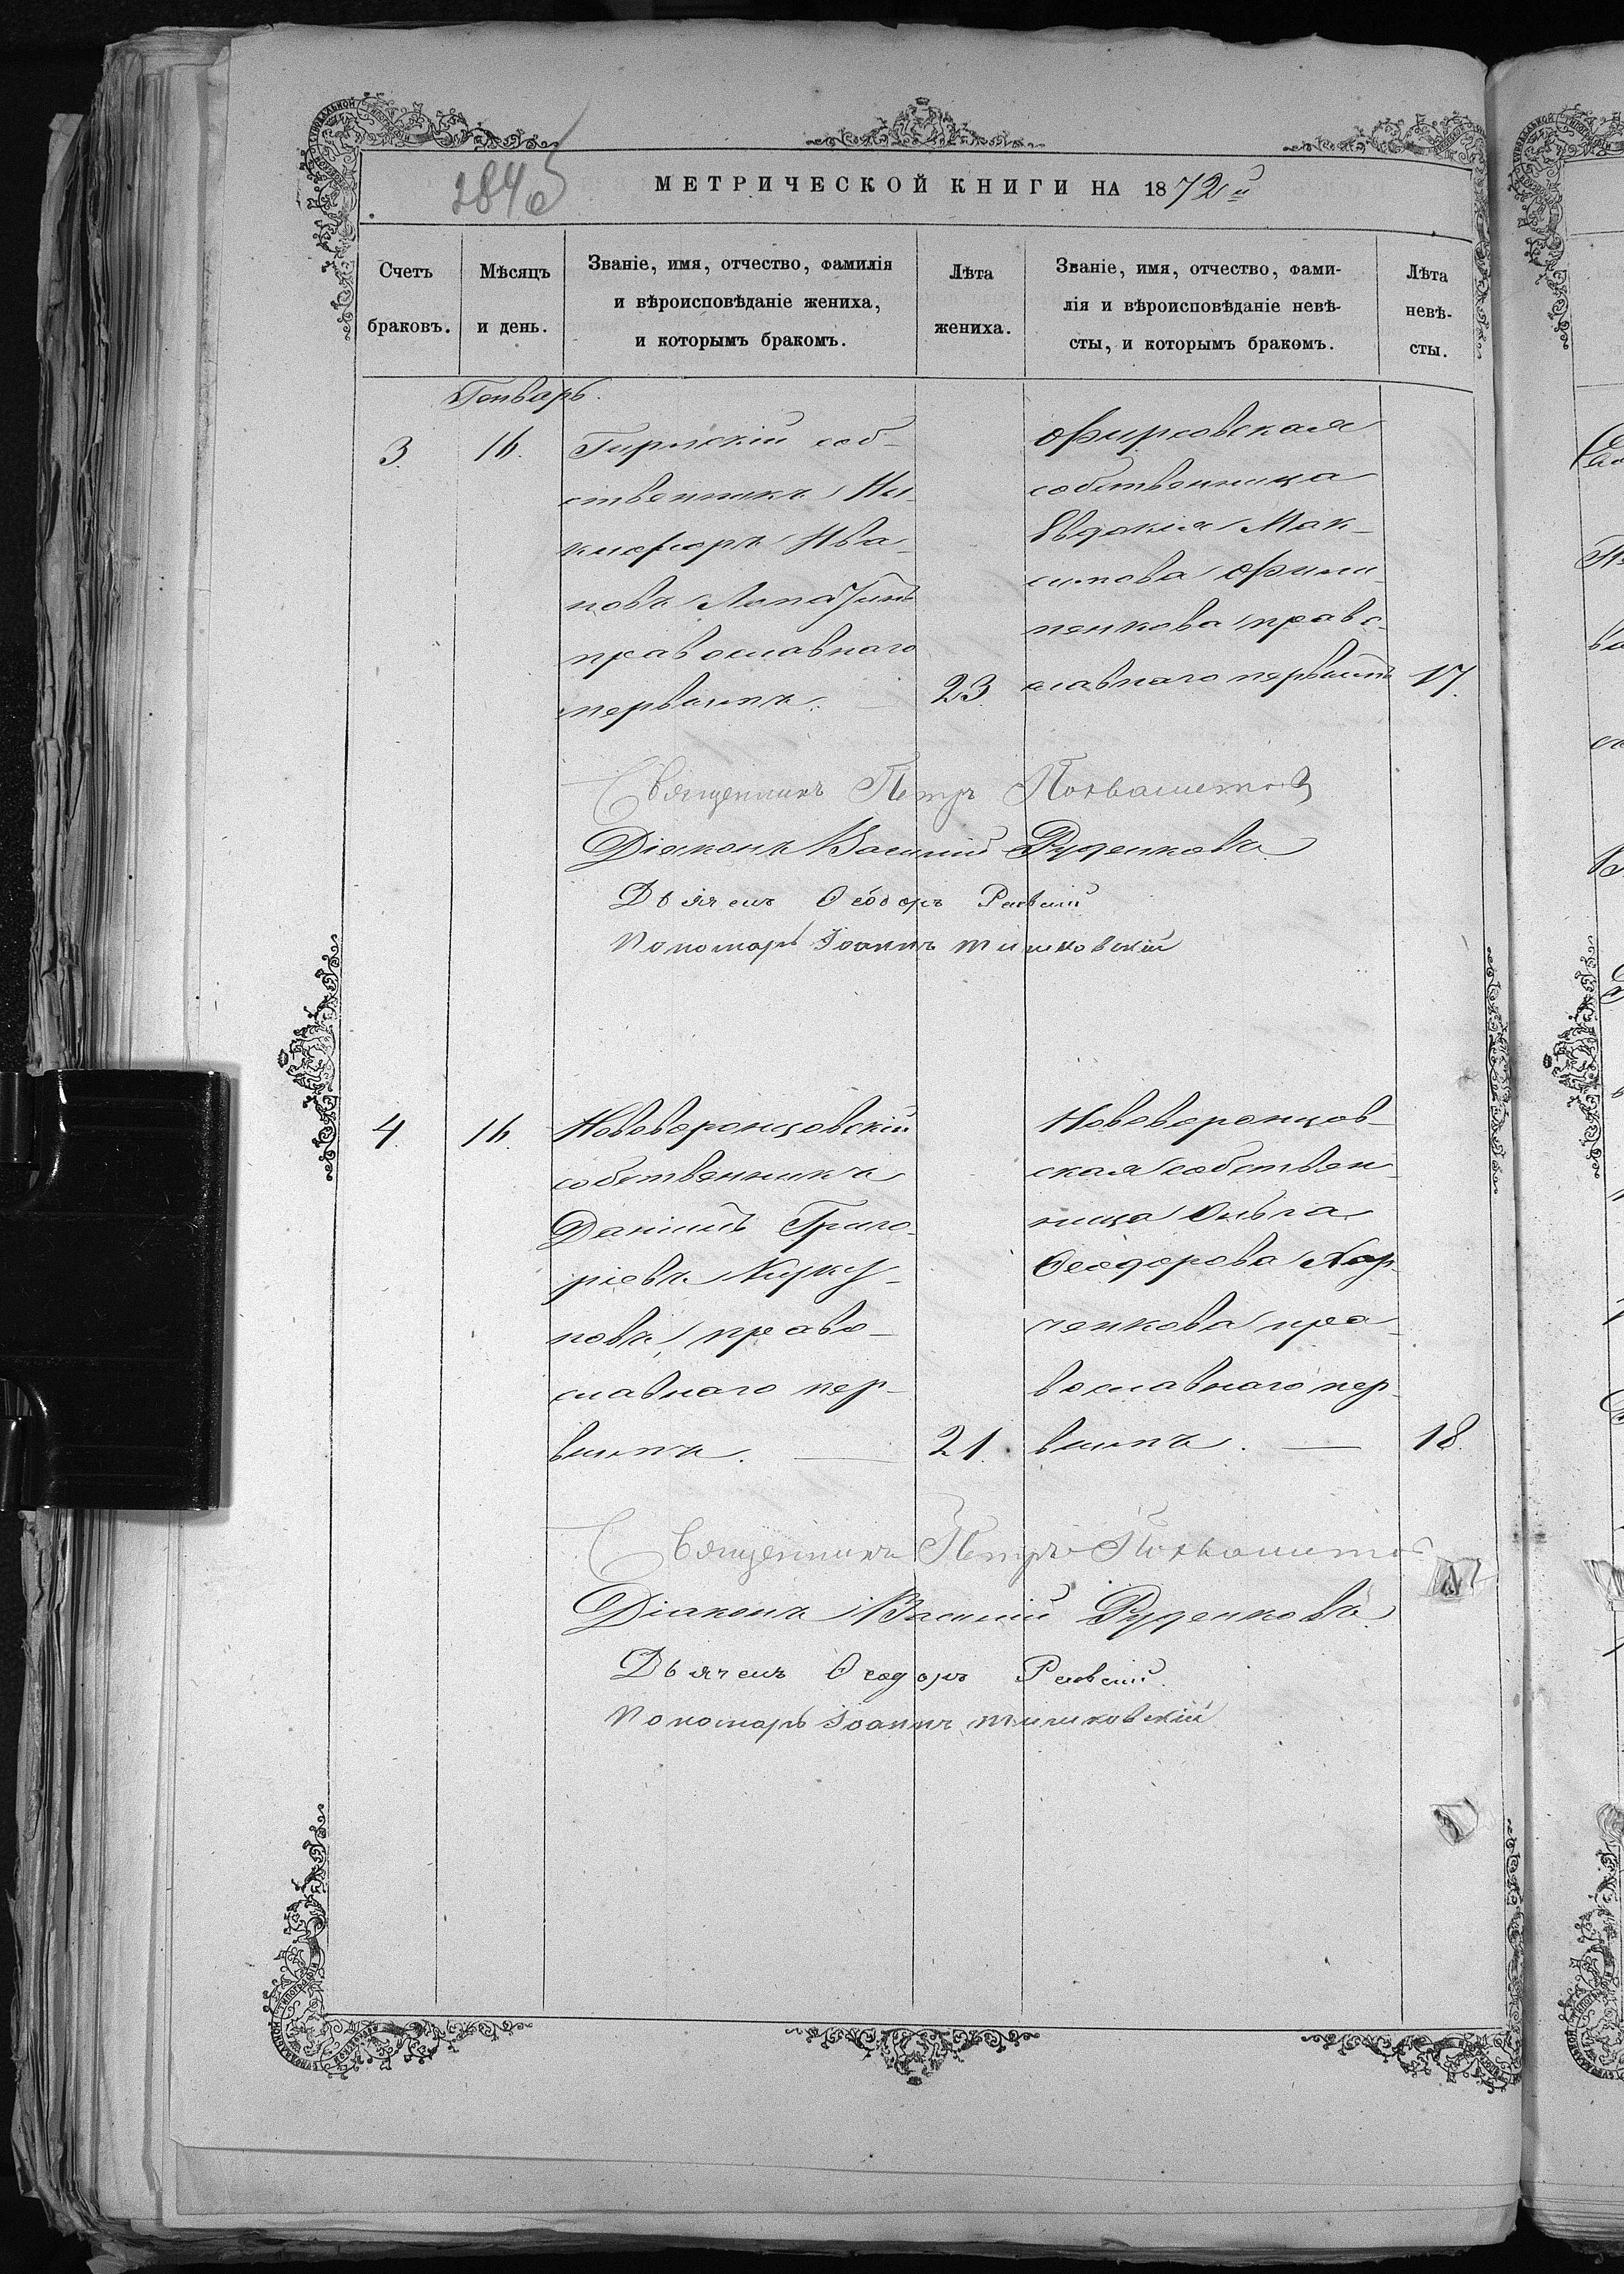 284 об
МЕТРИЧЕСКОЙ КНИГИ НА 1872й
Счетъ браковъ.
Мѣсяцъ и день.
Званіе, имя, отчество, фамилія
и вѣроисповѣданіе жениха,
и которымъ бракомъ.
Лѣта жениха.
Званіе, имя, отчество, фами-
лія и вѣроисповѣданіе невѣ-
сты, и которымъ бракомъ.
Лѣта невѣ-
сты.
Генварь.
3. 16.
Гирлскій соб-
ственникъ Ни-
кифоръ Ива-
новъ Лопатинъ
православнаго
первымъ.
23.
Фирсовская
собственница
Евдокія Мак-
симова Фили-
пенкова право-
славнаго первымъ
17.
Священникъ Петръ
Діаконъ Василій Руденковъ
Дьячекъ Ѳеодоръ Раевскій
Пономарь Іоаннъ Тишковскій
4. 16.
Нововоронцовскій
собственникъ
Даніилъ Григо-
ріевъ Кирку-
новъ, право-
славнаго пер-
вымъ.
21.
Нововоронцов-
ская собствен-
ница Ольга
Ѳеодорова Хар-
ченкова пра-
вославнаго пер-
вымъ.
18.
Священникъ Петръ
Діаконъ Василій Руденковъ
Дьячекъ Ѳеодоръ Раевскій.
Пономарь Іоаннъ Тишковскій